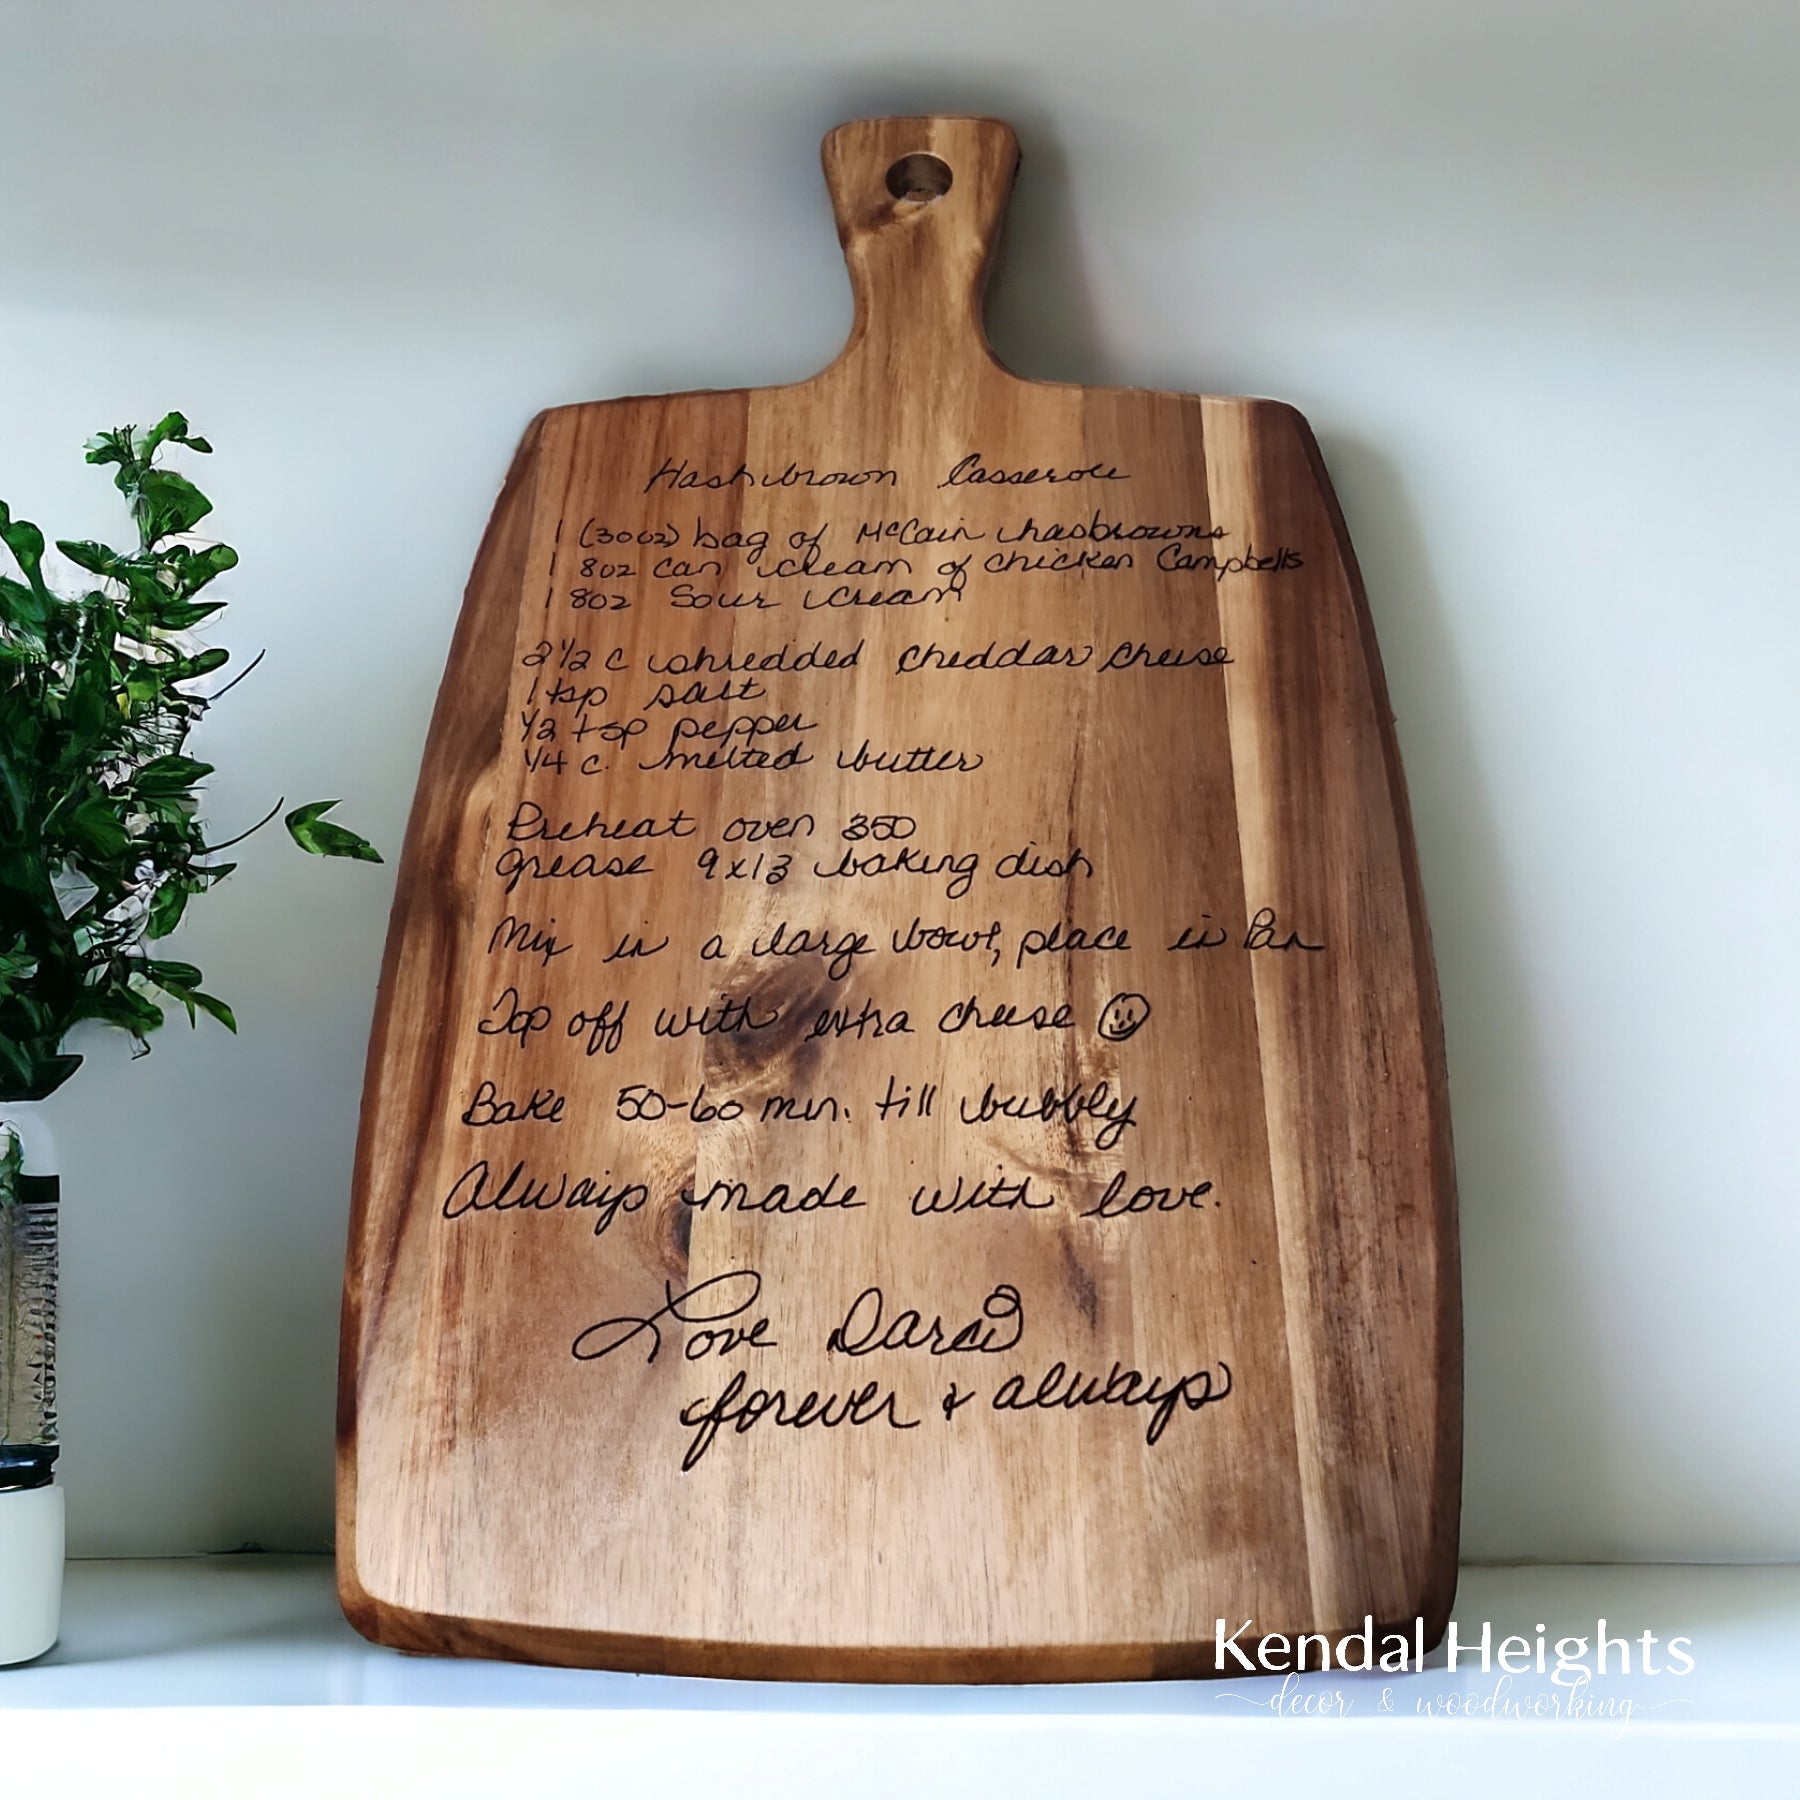 Hashbrown Casserole
1 (30oz) bag of McCain hasbrowns
1 8oz can cream of chicken Campbells
1 8oz Sour cream
2 1/2 c shredded cheddar cheese
1 tsp salt
1/2 tsp pepper
1/4 c. melted butter
Preheat oven 350
grease 9x13 baking dish
Mix in a large bowl, place in Pan
Top off with extra cheese ☺
Bake 50-60 min. till bubbly
Always made with love.
Love Darci
forever & always
Kendal Heights
decor & woodworking